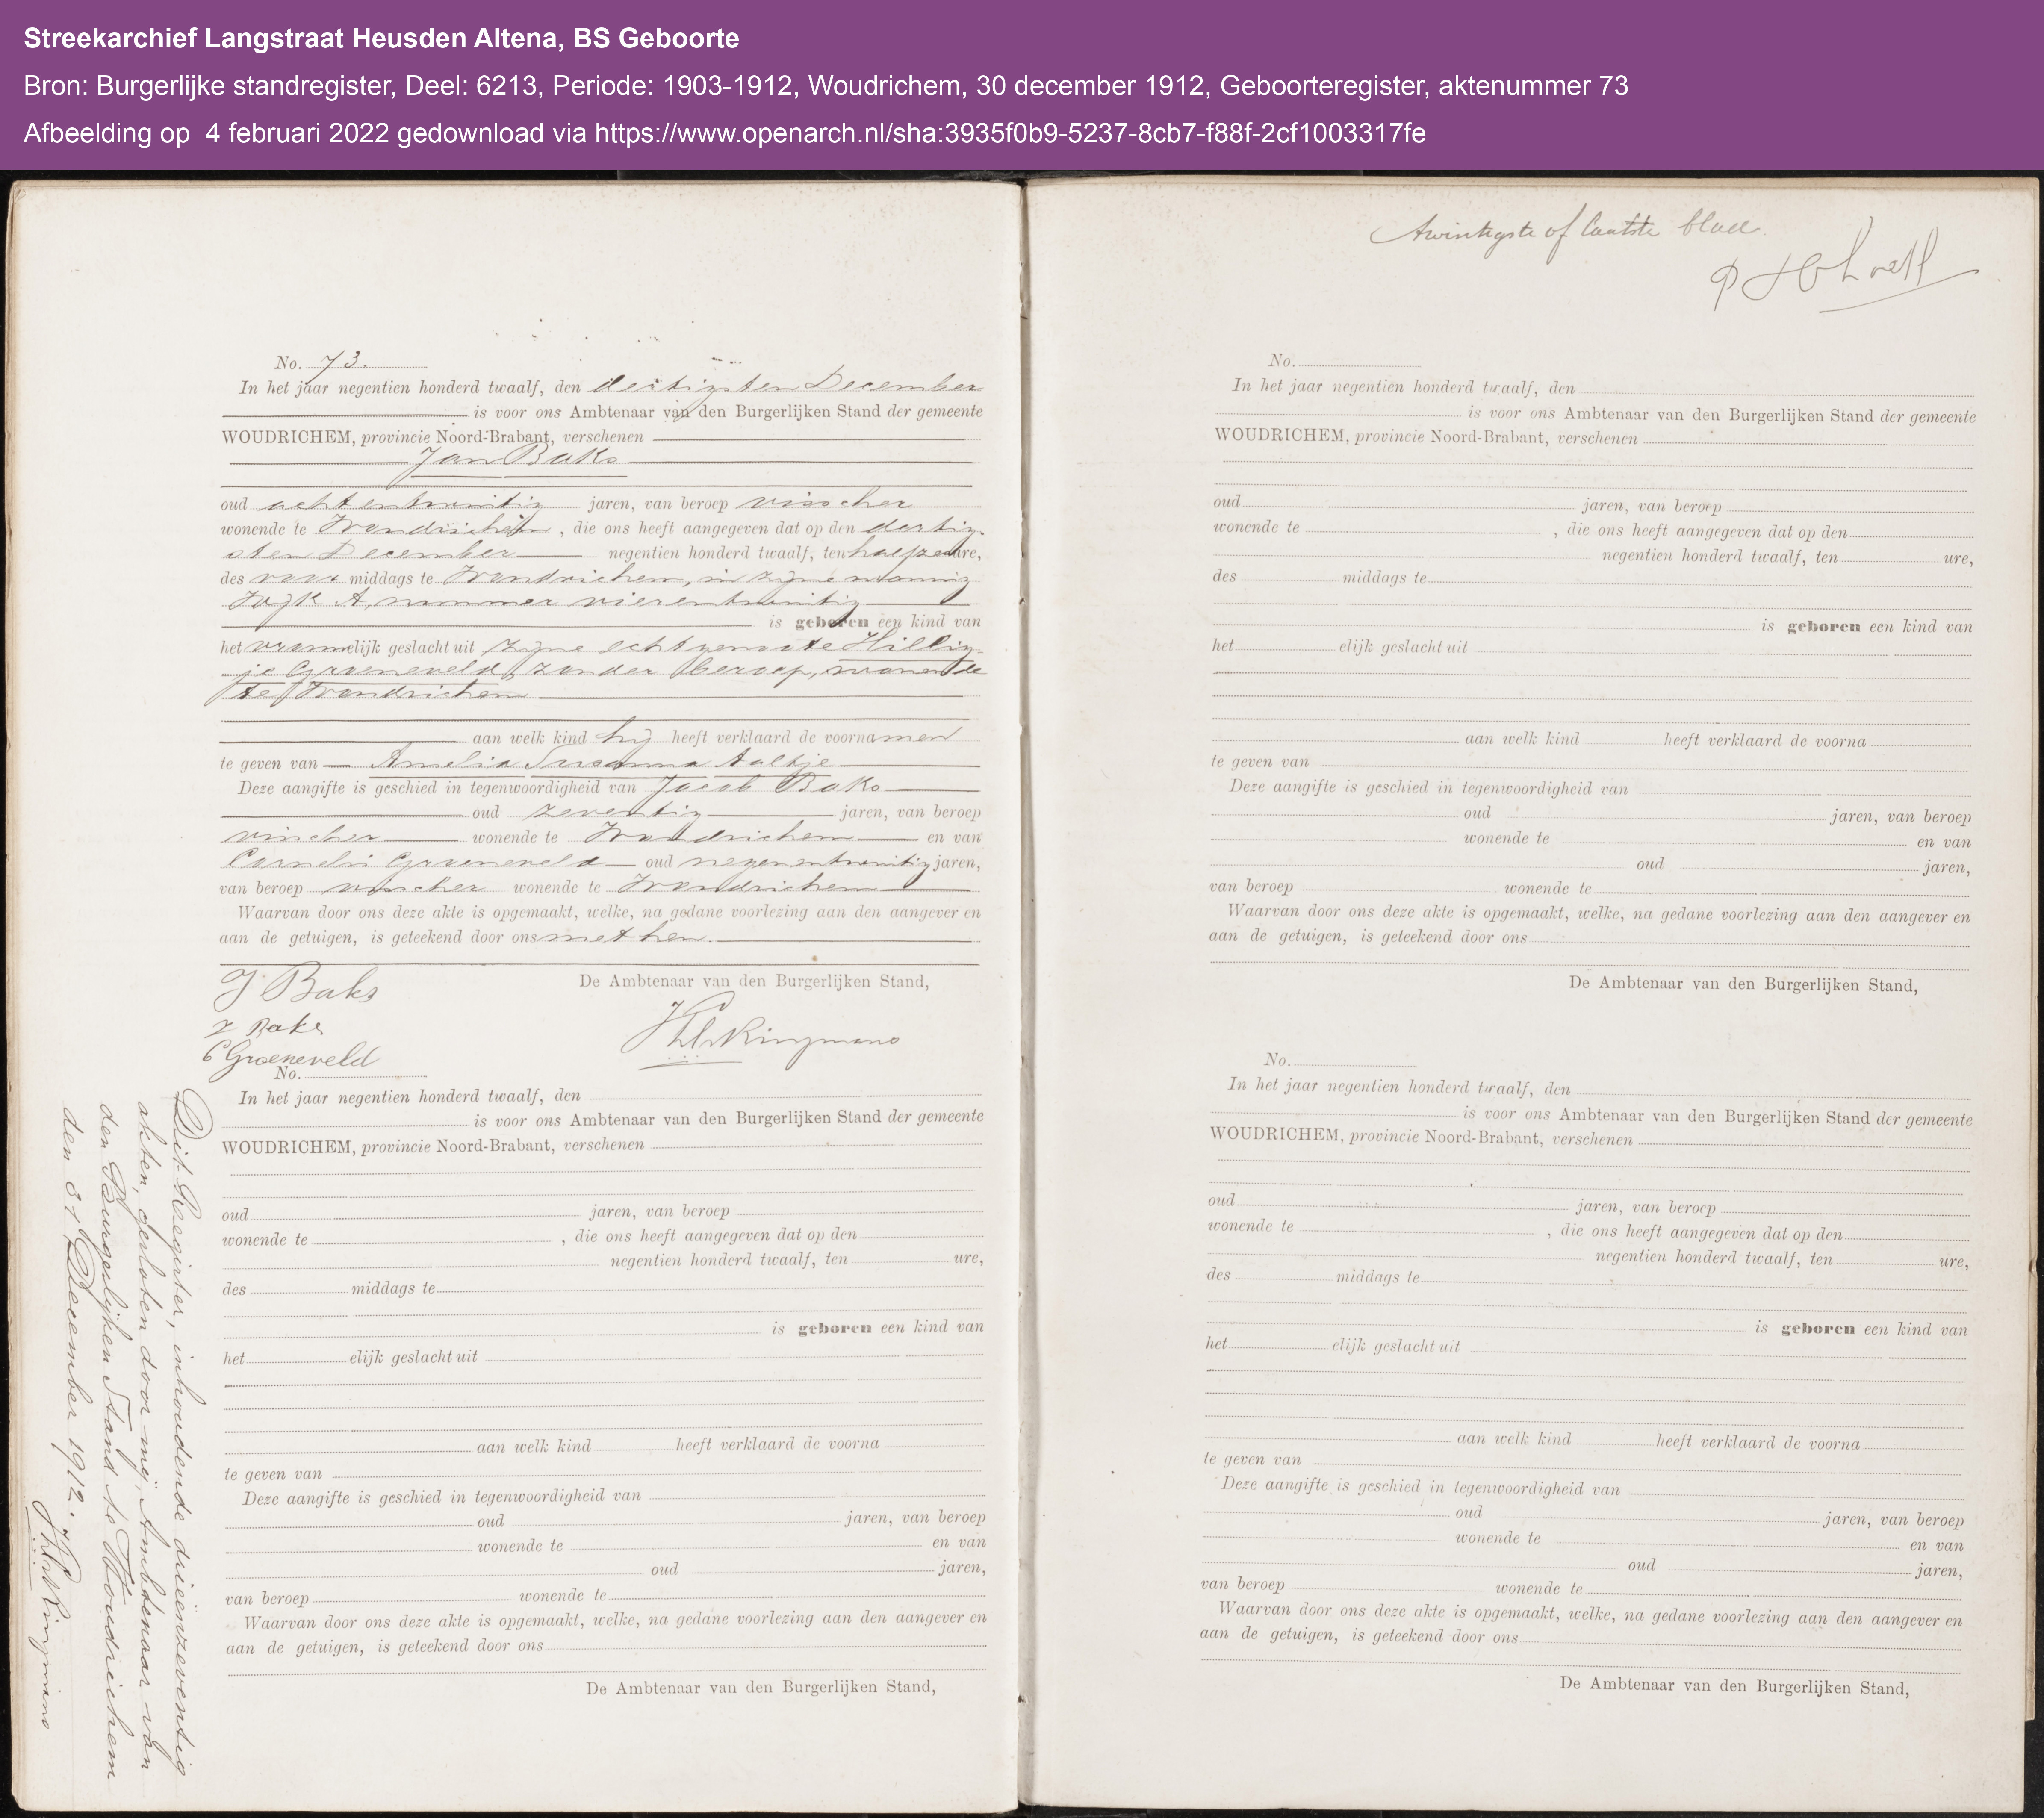 Streekarchief Langstraat Heusden Altena, BS Geboorte
Bron: Burgerlijke standregister, Deel: 6213, Periode: 1903-1912, Woudrichem, 30 december 1912, Geboorteregister, aktenummer 73
Afbeelding op 4 februari 2022 gedownload via https://www.openarch.nl/sha:3935f0b9-5237-8cb7-f88f-2cf1003317fe
No. 73.
In het jaar negentien honderd twaalf, den dertigsten December
is voor ons Ambtenaar van den Burgerlijken Stand der gemeente
WOUDRICHEM, provincie Noord-Brabant, verschenen
Jan Baks
oud achtentwintig jaren, van beroep visscher
wonende te Woudrichem, die ons heeft aangegeven dat op den dertig-
sten December negentien honderd twaalf, ten half zes ure,
des voor middags te Woudrichem, in zijne woning
Wijk A, nummer vierentwintig
is geboren een kind van
het vrouwelijk geslacht uit zijne echtgenoote Hillig-
je Groeneveld, zonder beroep, wonende
te Woudrichem
aan welk kind hij heeft verklaard de voornamen
te geven van Amelia Susanna Aaltje
Deze aangifte is geschied in tegenwoordigheid van Jacob Baks
oud zeventig jaren, van beroep
visscher wonende te Woudrichem en van
Cornelis Groeneveld oud negenentwintig jaren,
van beroep visscher wonende te Woudrichem
Waarvan door ons deze akte is opgemaakt, welke, na gedane voorlezing aan den aangever en
aan de getuigen, is geteekend door ons met hen.
De Ambtenaar van den Burgerlijken Stand,
J Baks
J Baks
C Groeneveld
No.
In het jaar negentien honderd twaalf, den
is voor ons Ambtenaar van den Burgerlijken Stand der gemeente
WOUDRICHEM, provincie Noord-Brabant, verschenen
oud jaren, van beroep
wonende te , die ons heeft aangegeven dat op den
negentien honderd twaalf, ten ure,
des middags te
is geboren een kind van
het elijk geslacht uit
aan welk kind heeft verklaard de voorna
te geven van
Deze aangifte is geschied in tegenwoordigheid van
oud jaren, van beroep
wonende te en van
oud jaren,
van beroep wonende te
Waarvan door ons deze akte is opgemaakt, welke, na gedane voorlezing aan den aangever en
aan de getuigen, is geteekend door ons
De Ambtenaar van den Burgerlijken Stand,
Dit Register, inhoudende drieënzeventig
akten, gesloten door mij, Ambtenaar van
den Burgerlijken Stand te Woudrichem
den 31 December 1912.
Twintigste of laatste blad.
No.
In het jaar negentien honderd twaalf, den
is voor ons Ambtenaar van den Burgerlijken Stand der gemeente
WOUDRICHEM, provincie Noord-Brabant, verschenen
oud jaren, van beroep
wonende te , die ons heeft aangegeven dat op den
negentien honderd twaalf, ten ure,
des middags te
is geboren een kind van
het elijk geslacht uit
aan welk kind heeft verklaard de voorna
te geven van
Deze aangifte is geschied in tegenwoordigheid van
oud jaren, van beroep
wonende te en van
oud jaren,
van beroep wonende te
Waarvan door ons deze akte is opgemaakt, welke, na gedane voorlezing aan den aangever en
aan de getuigen, is geteekend door ons
De Ambtenaar van den Burgerlijken Stand,
No.
In het jaar negentien honderd twaalf, den
is voor ons Ambtenaar van den Burgerlijken Stand der gemeente
WOUDRICHEM, provincie Noord-Brabant, verschenen
oud jaren, van beroep
wonende te , die ons heeft aangegeven dat op den
negentien honderd twaalf, ten ure,
des middags te
is geboren een kind van
het elijk geslacht uit
aan welk kind heeft verklaard de voorna
te geven van
Deze aangifte is geschied in tegenwoordigheid van
oud jaren, van beroep
wonende te en van
oud jaren,
van beroep wonende te
Waarvan door ons deze akte is opgemaakt, welke, na gedane voorlezing aan den aangever en
aan de getuigen, is geteekend door ons
De Ambtenaar van den Burgerlijken Stand,